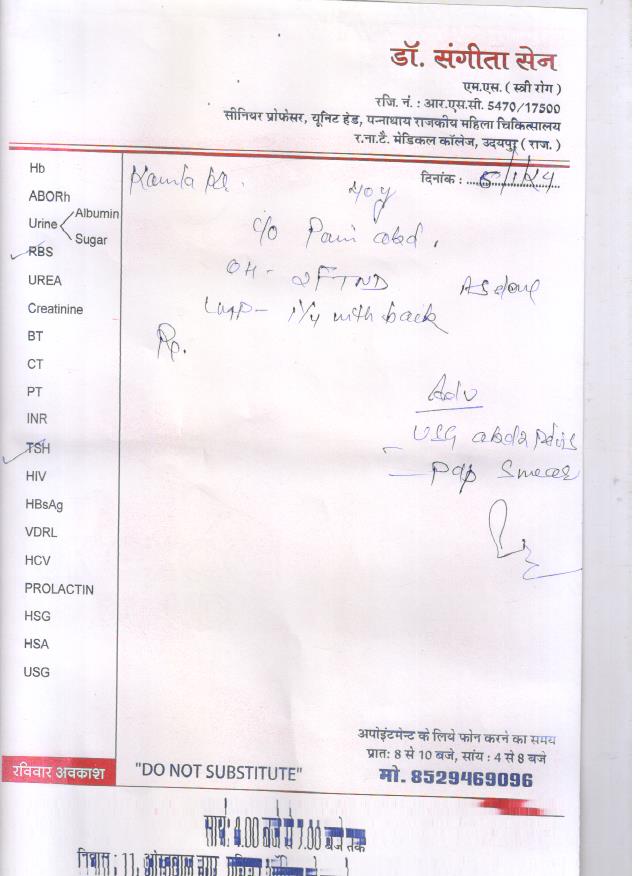 डॉ. संगीता सेन
एम.एस. ( स्त्री रोग )
रजि. नं. : आर.एस.सी. 5470/17500
सीनियर प्रोफेसर, यूनिट हेड, पन्नाधाय राजकीय महिला चिकित्सालय
र.ना.टै. मेडिकल कॉलेज, उदयपुर ( राज. )
दिनांक : 5/1/24
Hb
ABORh
Urine Albumin
Sugar
RBS
UREA
Creatinine
BT
CT
PT
INR
TSH
HIV
HBsAg
VDRL
HCV
PROLACTIN
HSG
HSA
USG
Kamla 40y
c/o Pain abd.
OH - 2FTND
LMP - 1/4 mth back
Rp.
Adv
USG abd & Pelvis
- Pap Smear
रविवार अवकाश
"DO NOT SUBSTITUTE"
अपोइंटमेन्ट के लिये फोन करने का समय
प्रात: 8 से 10 बजे, सांय : 4 से 8 बजे
मो. 8529469096
सायं: 4.00 बजे से 7.00 बजे तक
निवास : 11,